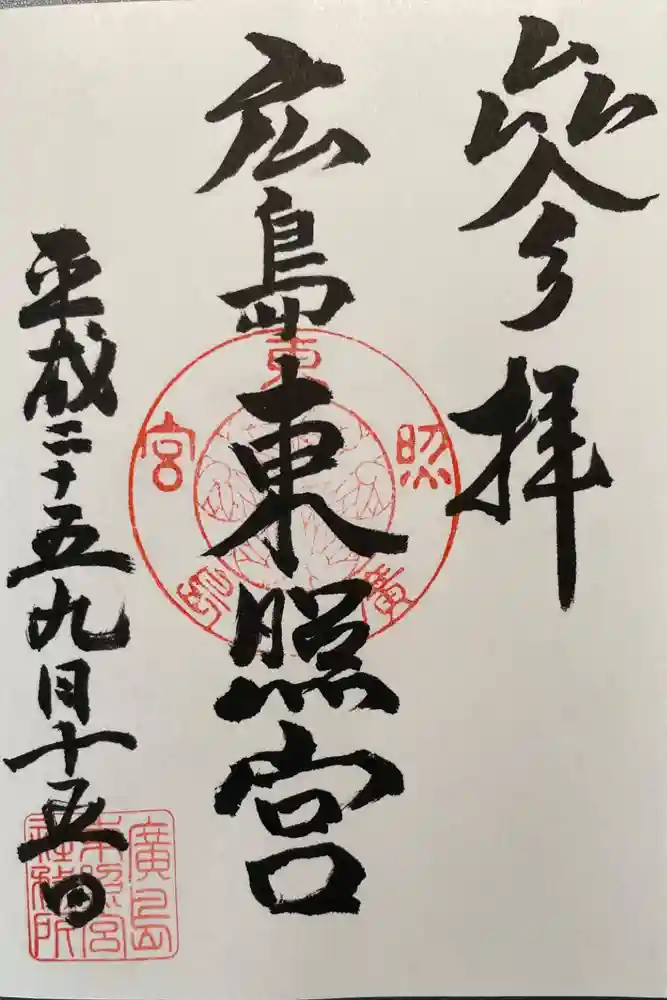 參拝
広島東照宮
平成二十五年九月十五日
東
照
廣
島
宮
廣島
東照宮
社務所